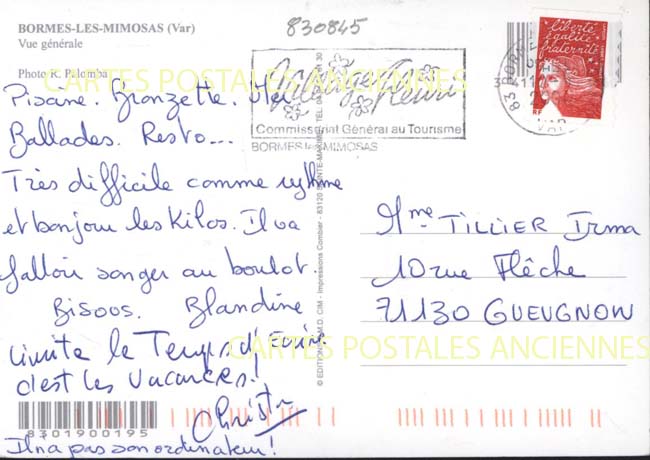 BORMES-LES-MIMOSAS (Var)
Vue générale
Photo R. Palomba
830845
Village Fleuri
Commissariat Général au Tourisme
BORMES les MIMOSAS
liberté
égalité
fraternité
RF
83 BORMES
VAR
CARTES POSTALES ANCIENNES
Piscine. Bronzette.
Ballades. Resto...
Très difficile comme rythme
et bonjour les Kilos. Il va
falloir songer au boulot.
Bisoos. Blandine
Limite le Temps d'Ecrire
c'est les vacances!
Christ
Il n'a pas son ordinateur!
8301900195
© EDITIONS M.D. CIM - Impressions Combier - 83120 SAINTE-MAXIME - TEL.
Mme TILLIER Irma
10 rue Flêche
71130 GUEUGNON
CARTES POSTALES ANCIENNES